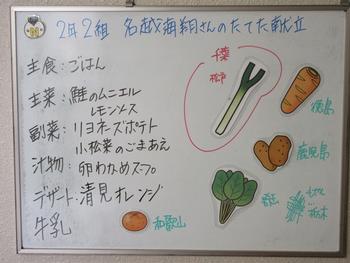 2年2組 名越海翔さんのたてた献立
主食:ごはん
主菜:鮭のムニエル
レモンソース
副菜:リヨネーズポテト
小松菜のごまあえ
汁物:卵わかめスープ
デザート:清見オレンジ
牛乳
千葉
松戸
徳島
鹿児島
埼玉
栃木
和歌山